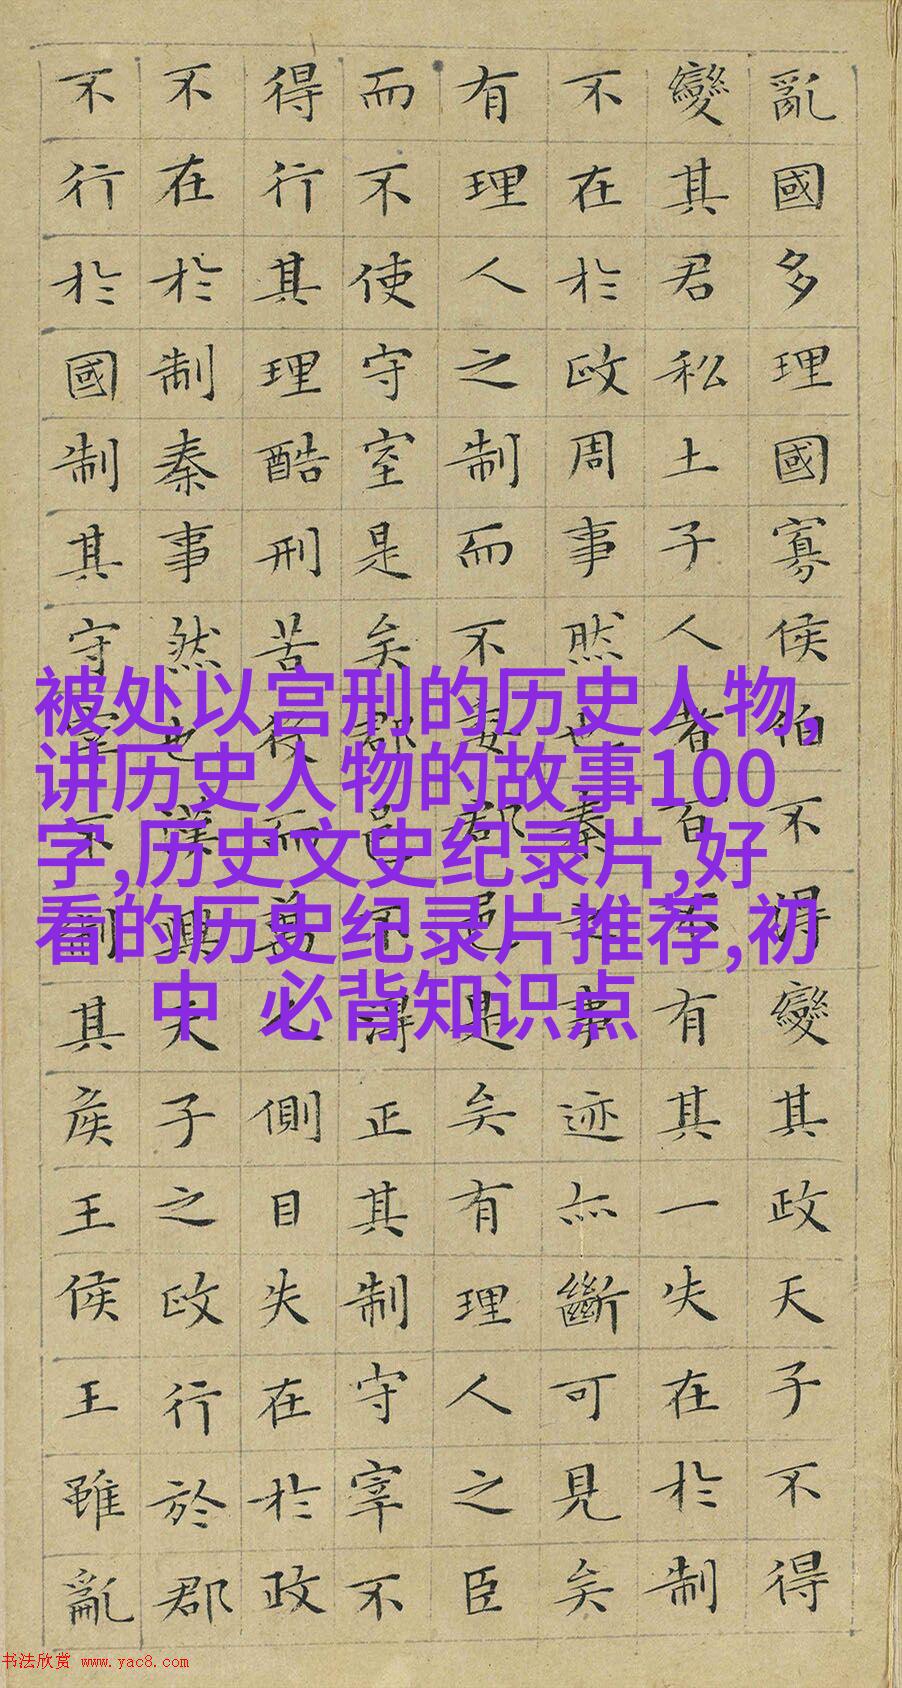 亂國多理國寡侯伯不得變其政天子不得
變其君私土子人者百不有其一失在於制
不在於政周事然也秦之事迹亦斷可見矣
有理人之制而不委郡邑是矣有理人之臣
而不使守宰是矣郡邑不得正其制守宰不
得行其理酷刑苦役而萬人側目失在於政
不在於制秦事然也漢興天子之政行於郡
不行於國制其守宰不制其侯王侯王雖亂
被处以宫刑的历史人物,
讲历史人物的故事100
字,历史文史纪录片,好
看的历史纪录片推荐,初
中 必背知识点
书法欣赏 www.yac8.com